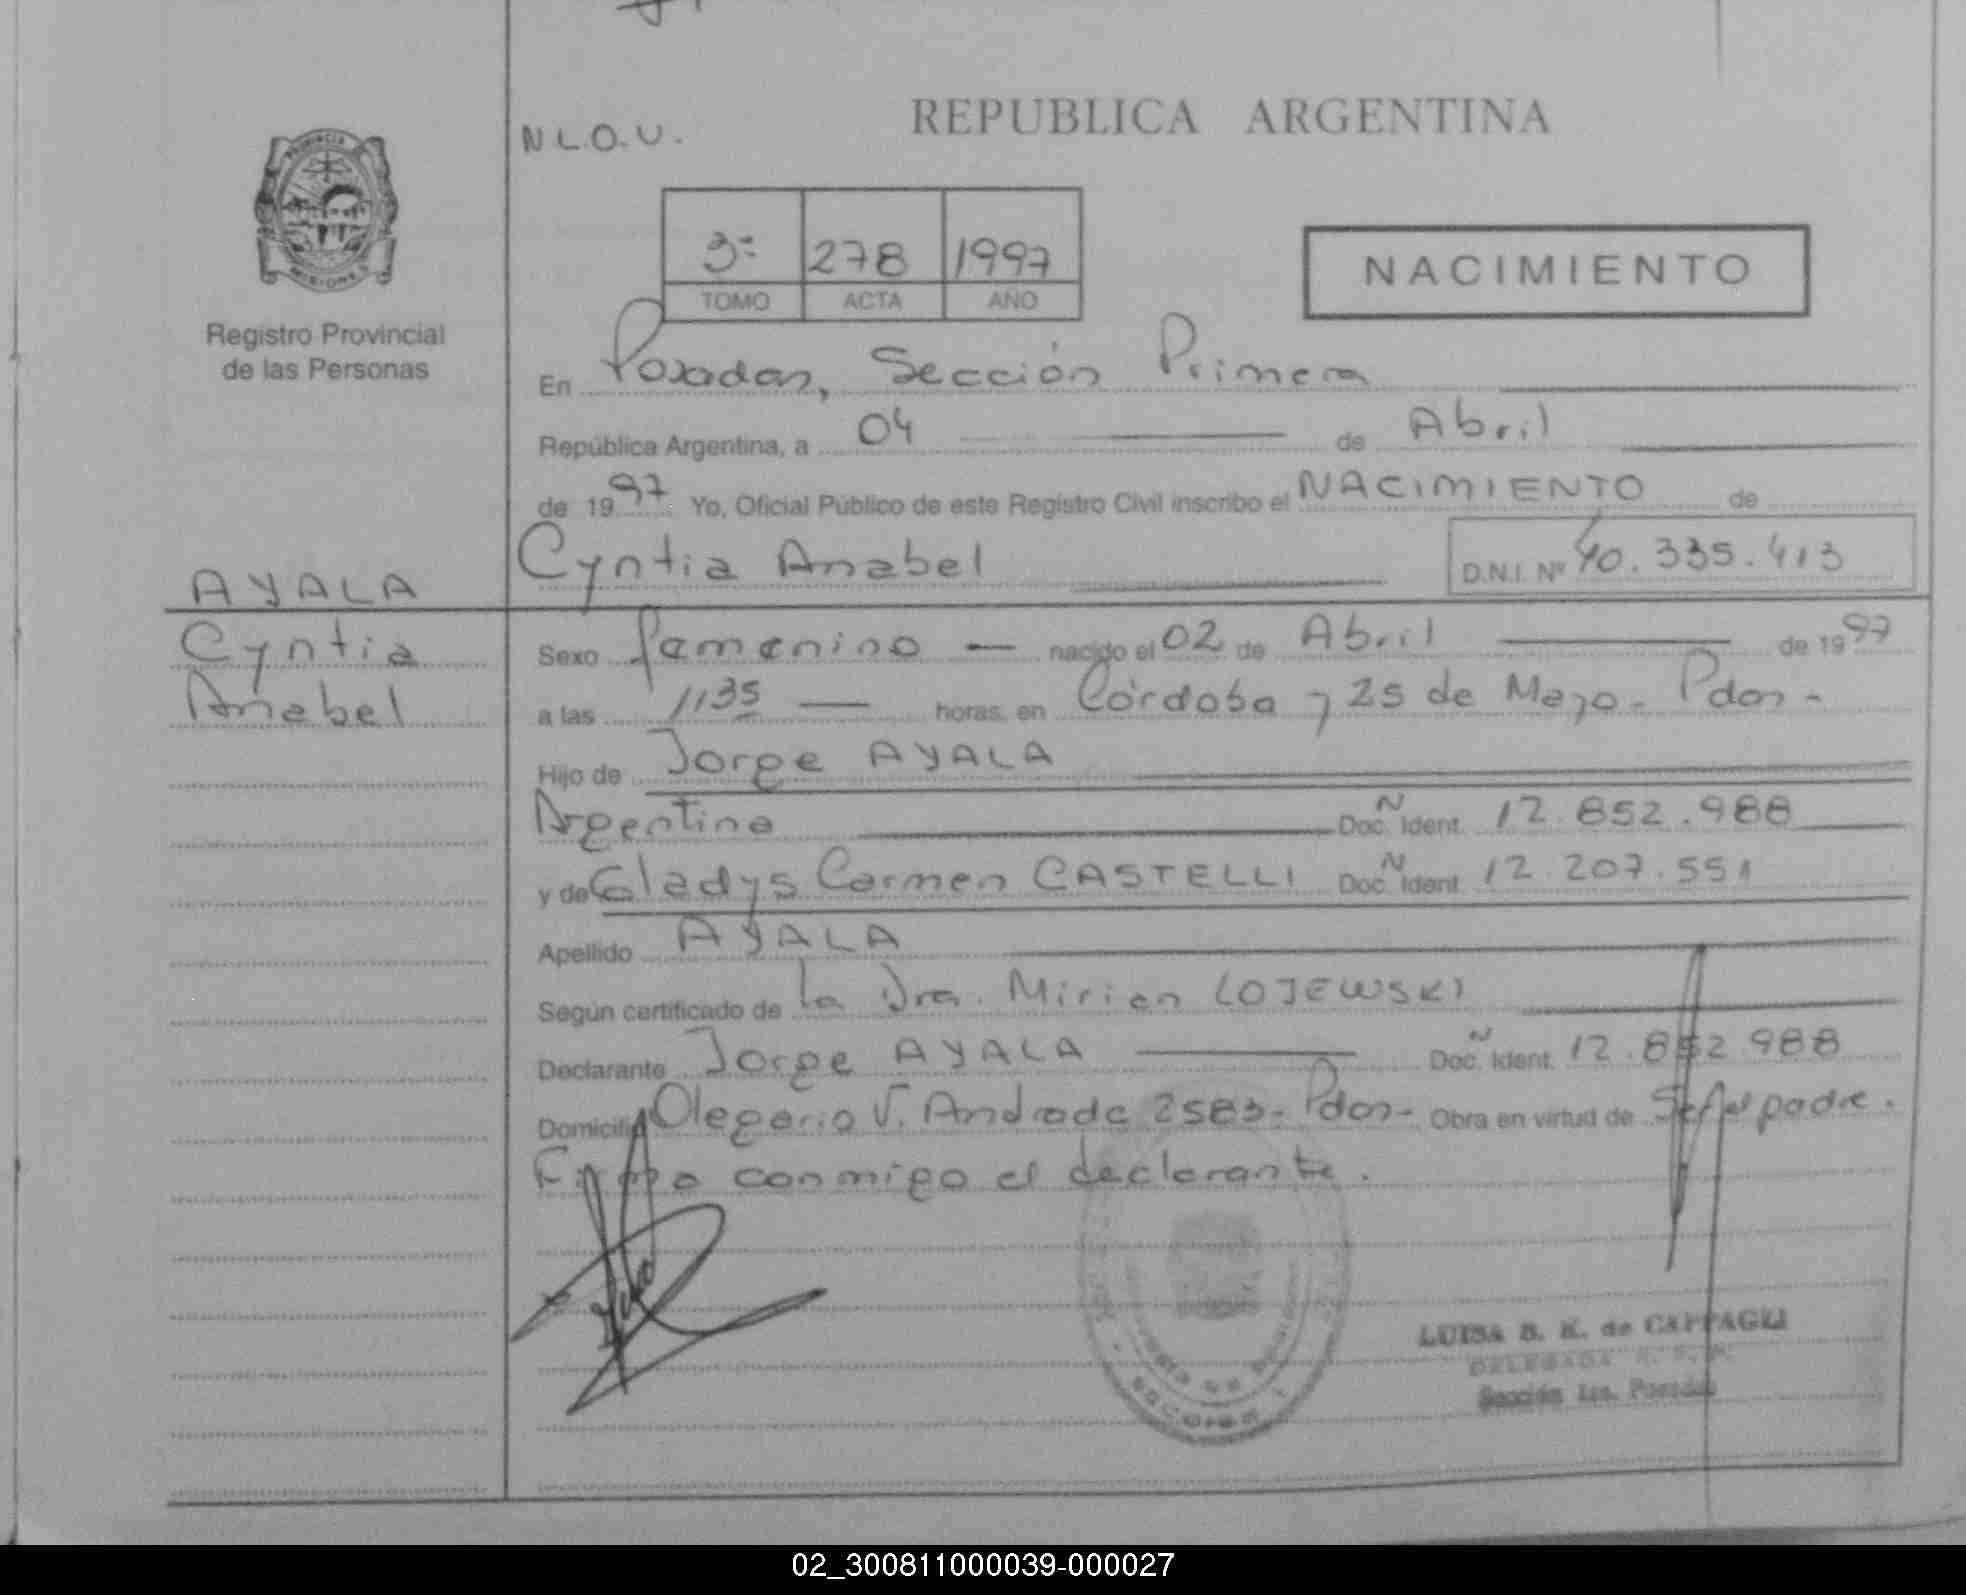 REPUBLICA ARGENTINA
N L.O.U.
PROVINCIA
MISIONES
Registro Provincial
de las Personas
3º 278 1997
TOMO ACTA AÑO
NACIMIENTO
En Posadas, Sección Primera
República Argentina, a 04 de Abril
de 1997 Yo, Oficial Público de este Registro Civil inscribo el NACIMIENTO de
Cyntia Anabel D.N.I. Nº 40.335.413
AYALA
Cyntia
Anabel
Sexo femenino nacido el 02 de Abril de 1997
a las 1135 horas, en Córdoba y 25 de Mayo - Pdas -
Hijo de Jorge AYALA
Argentina Doc. Ident. N 12.852.988
y de Gladys Carmen CASTELLI Doc. Ident. N 12.207.551
Apellido AYALA
Según certificado de la Dra. Mirian LOJEWSKI
Declarante Jorge AYALA Doc. Ident. N 12.852.988
Domicilio Olegario V. Andrade 2583 - Pdas - Obra en virtud de Ser el padre.
Firma conmigo el declarante.
LUISA B. K. de CAPPAGLI
DELEGADA
Sección 1ra. Posadas
02_300811000039-000027